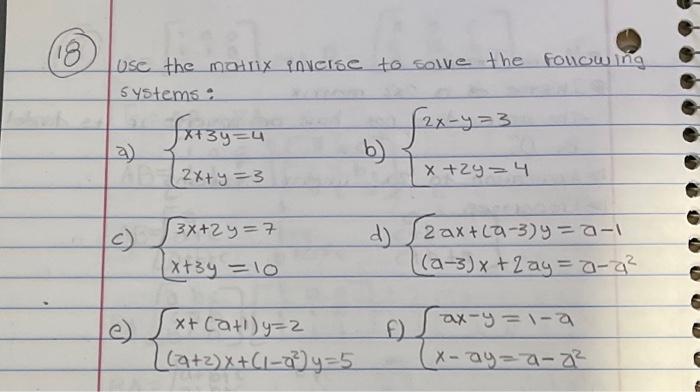 18 Use the matrix inverse to solve the following
systems:
a) { x+3y=4
2x+y=3
b) { 2x-y=3
x+2y=4
c) { 3x+2y=7
x+3y=10
d) { 2ax+(a-3)y=a-1
(a-3)x+2ay=a-a²
e) { x+(a+1)y=2
(a+2)x+(1-a²)y=5
f) { ax-y=1-a
x-ay=a-a²